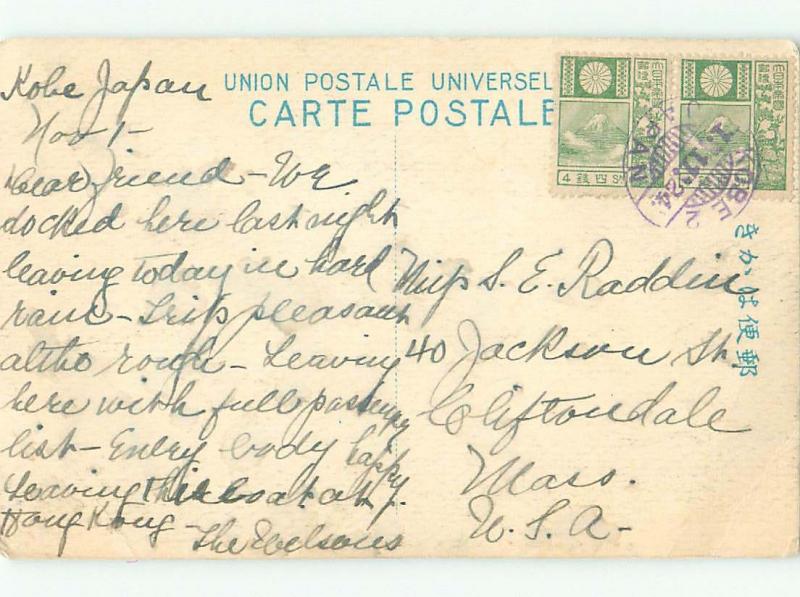 UNION POSTALE UNIVERSEL
CARTE POSTALE
Kobe Japan
Nov 1-
Dear friend - We
docked here last night
leaving today in hard
rain - Trip pleasant
altho rough - Leaving
here with full passenger
list - Every body happy.
Leaving this boat at
Hong Kong -
The Wilsons
Miss S. E. Raddin
40 Jackson St
Cliftondale
Mass.
U.S.A-
4 銭四
KOBE
JAPAN
1.11.24
きかは便郵